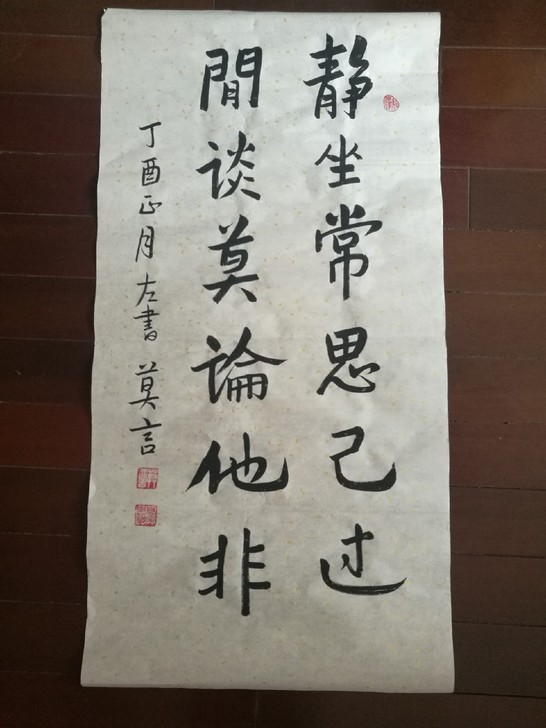 静坐常思己过
閒谈莫論他非
丁酉正月左書莫言